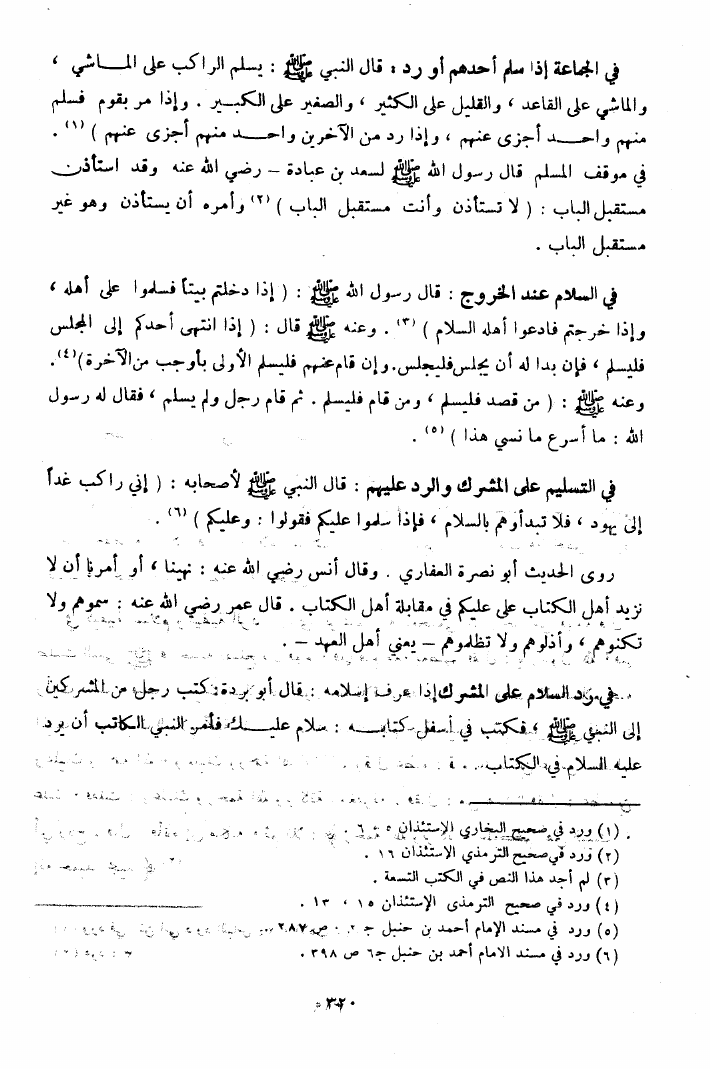 في الجماعة إذا سلم أحدهم أو رد : قال النبي ﷺ : يسلم الراكب على المـــاشي ،
والماشي على القاعد ، والقليل على الكثير ، والصغير على الكبـــير . وإذا مر بقوم فسلم
منهم واحـــد أجزى عنهم ، وإذا رد من الآخرين واحـــد منهم أجزى عنهم ) (١) .
في موقف المسلم قال رسول الله ﷺ لسعد بن عبادة – رضي الله عنه وقد استأذن
مستقبل الباب : ( لا تستأذن وأنت مستقبل الباب ) (٢) وأمره أن يستأذن وهو غير
مستقبل الباب .
في السلام عند الخروج : قال رسول الله ﷺ : ( إذا دخلتم بيتاً فسلموا على أهله ،
وإذا خرجتم فادعوا أهله السلام ) (٣) . وعنه ﷺ قال : ( إذا انتهى أحدكم إلى المجلس
فليسلم ، فإن بدا له أن يجلس فليجلس . وإن قام عنهم فليسلم الأولى بأوجب من الآخرة ) (٤) .
وعنه ﷺ : ( من قصد فليسلم ، ومن قام فليسلم . ثم قام رجل ولم يسلم ، فقال له رسول
الله : ما أسرع ما نسي هذا ) (٥) .
في التسليم على المشرك والرد عليهم : قال النبي ﷺ لأصحابه : ( إني راكب غداً
إلى يهود ، فلا تبدأوهم بالسلام ، فإذا سلموا عليكم فقولوا : وعليكم ) (٦) .
روى الحديث أبو نصرة العفاري . وقال أنس رضي الله عنه : نهينا ، أو أمرنا أن لا
نزيد أهل الكتاب على عليكم في مقابلة أهل الكتاب . قال عمر رضي الله عنه : سموهم ولا
تكنوهم ، وأذلوهم ولا تظلموهم – يعني أهل العهد – .
في رد السلام على المشرك إذا عرف إسلامه : قال أبو بردة : كتب رجل من المشركين
إلى النبي ﷺ ، فكتب في أسفل كتابـــه : سلام عليـــك فأمر النبي الكاتب أن يرد
عليه السلام في الكتاب .
(١) ورد في صحيح البخاري الإستئذان ٥ ، ٦ .
(٢) ورد في صحيح الترمذي الاستئذان ١٦ .
(٣) لم أجد هذا النص في الكتب التسعة .
(٤) ورد في صحيح الترمذى الإستئذان ١٥ ، ١٣ .
(٥) ورد في مسند الإمام أحمد بن حنبل ج ٢ . ص ٢٨٧ .
(٦) ورد في مسند الامام أحمد بن حنبل ج٦ ص ٣٩٨ .
٣٢٠